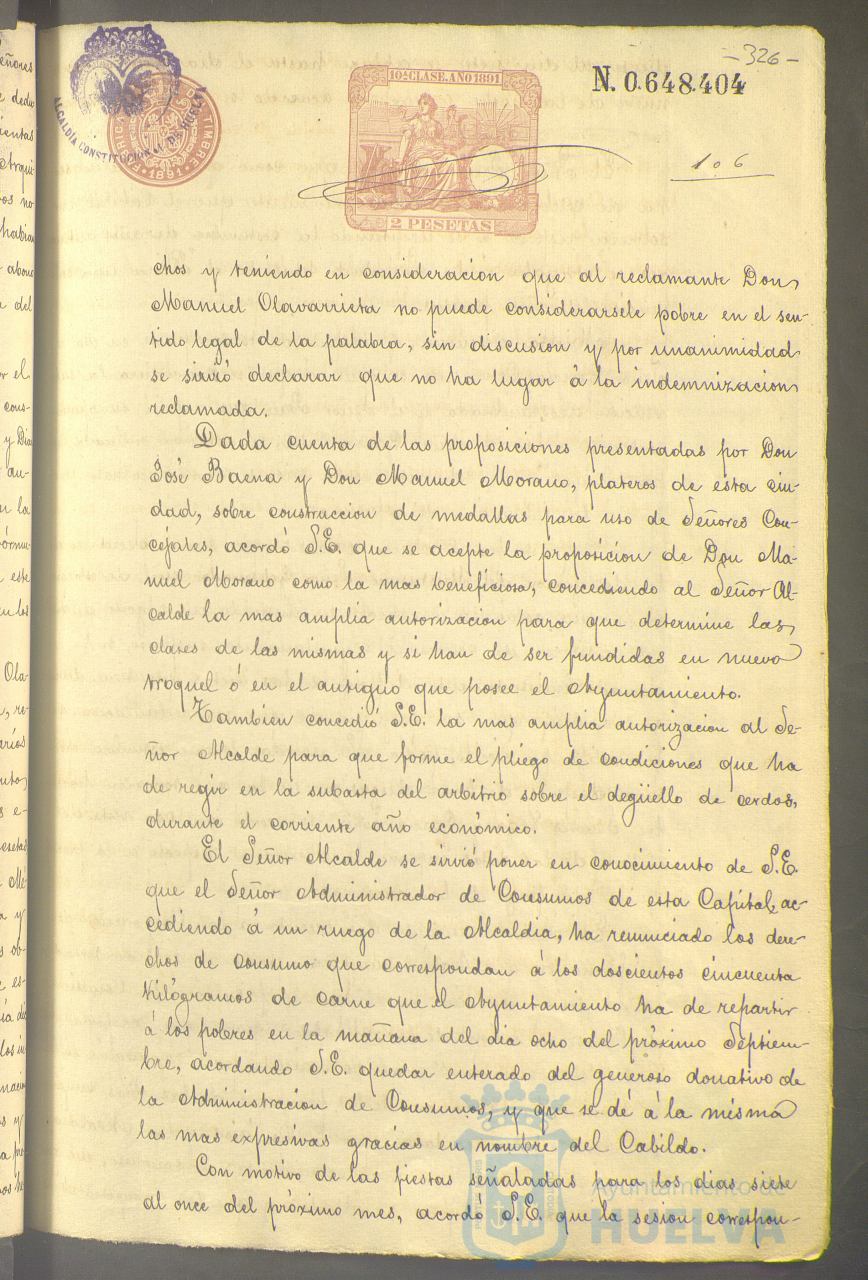 - 326 -
N. 0.648.404
10ª CLASE. AÑO 1891
2 PESETAS
ALCALDÍA CONSTITUCIONAL DE HUELVA
TIMBRE
1891
106
chos y teniendo en consideracion que al reclamante Don
Manuel Olavarrieta no puede considerarsele pobre en el sen-
tido legal de la palabra, sin discusion y por unanimidad
se sirvió declarar que no ha lugar á la indemnizacion
reclamada.
Dada cuenta de las proposiciones presentadas por Don
José Baena y Don Manuel Morano, plateros de esta ciu-
dad, sobre construccion de medallas para uso de Señores Con-
cejales, acordó S.E. que se acepte la proposicion de Don Ma-
nuel Morano como la mas beneficiosa, concediendo al Señor Al-
calde la mas amplia autorizacion para que determine las
clases de las mismas y si han de ser fundidas en nuevo
troquel ó en el antiguo que posee el Ayuntamiento.
Tambien concedió S.E. la mas amplia autorizacion al Se-
ñor Alcalde para que forme el pliego de condiciones que ha
de regir en la subasta del arbitrio sobre el degüello de cerdos,
durante el corriente año económico.
El Señor Alcalde se sirvió poner en conocimiento de S.E.
que el Señor Administrador de Consumos de esta Capital, ac-
cediendo á un ruego de la Alcaldia, ha renunciado los dere-
chos de consumo que correspondan á los doscientos cincuenta
Kilógramos de carne que el Ayuntamiento ha de repartir
á los pobres en la mañana del dia ocho del próximo Septiem-
bre, acordando S.E. quedar enterado del generoso donativo de
la Administracion de Consumos, y que se dé á la misma
las mas expresivas gracias en nombre del Cabildo.
Con motivo de las fiestas señaladas para los dias siete
al once del próximo mes, acordó S.E. que la sesion correspon-
Ayuntamiento de
HUELVA